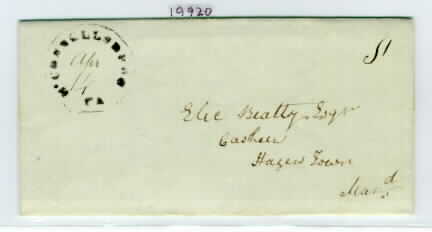 19920
McCONNELLSBURG
Apr
14
PA
Elie Beatty Esqr
Casheer
Hagers Town
Mard